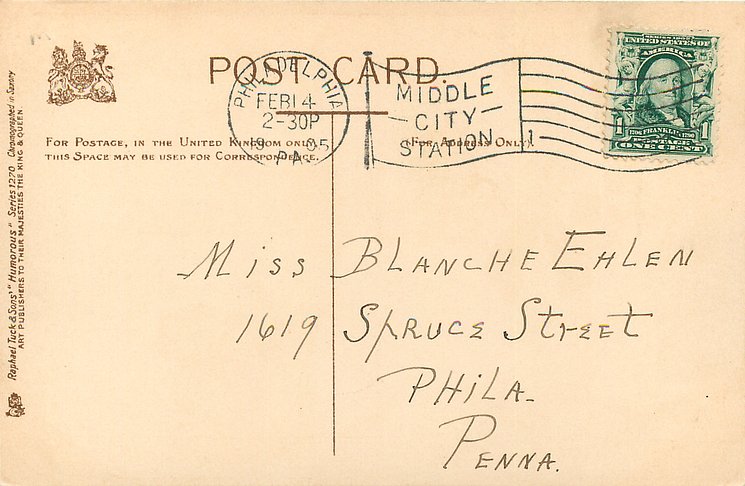 POST CARD.
FOR POSTAGE, IN THE UNITED KINGDOM ONLY,
THIS SPACE MAY BE USED FOR CORRESPONDENCE.
(FOR ADDRESS ONLY)
PHILADELPHIA
FEB 14
2-30P
1905
PA.
MIDDLE
CITY
STATION
1
SERIES 1902
UNITED STATES OF
AMERICA
1 1706 FRANKLIN 1790 1
POSTAGE
ONE CENT
Miss BLANCHE EHLEN
1619 Spruce Street
PHiLA.
PENNA.
Raphael Tuck & Sons' "Humorous" Series 1270 Chromographed in Saxony
ART PUBLISHERS TO THEIR MAJESTIES THE KING & QUEEN